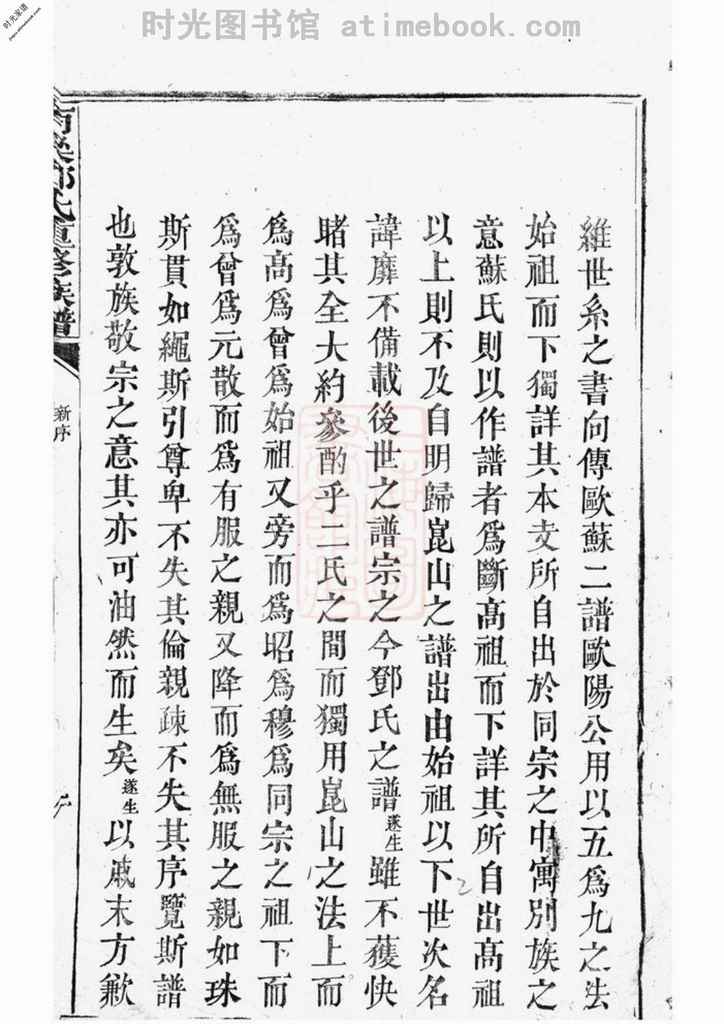 时光图书馆 atimebook.com
时光家谱
維世系之書向傳歐蘇二譜歐陽公用以五爲九之法
始祖而下獨詳其本支所自出於同宗之中寓別族之
意蘇氏則以作譜者爲斷高祖而下詳其所自出高祖
以上則不及自明歸崑山之譜出由始祖以下世次名
諱靡不備載後世之譜宗之今鄧氏之譜遂生雖不獲快
睹其全大約參酌乎二氏之間而獨用崑山之法上而
爲高爲曾爲始祖又旁而爲昭爲穆爲同宗之祖下而
爲曾爲元散而爲有服之親又降而爲無服之親如珠
斯貫如繩斯引尊卑不失其倫親疎不失其序覽斯譜
也敦族敬宗之意其亦可油然而生矣遂生以戚末方歉
氏重修族譜
新序